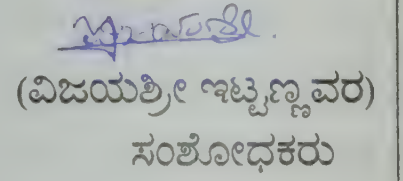 (ವಿಜಯಶ್ರೀ ಇಟ್ಟಣ್ಣವರ)
ಸಂಶೋಧಕರು